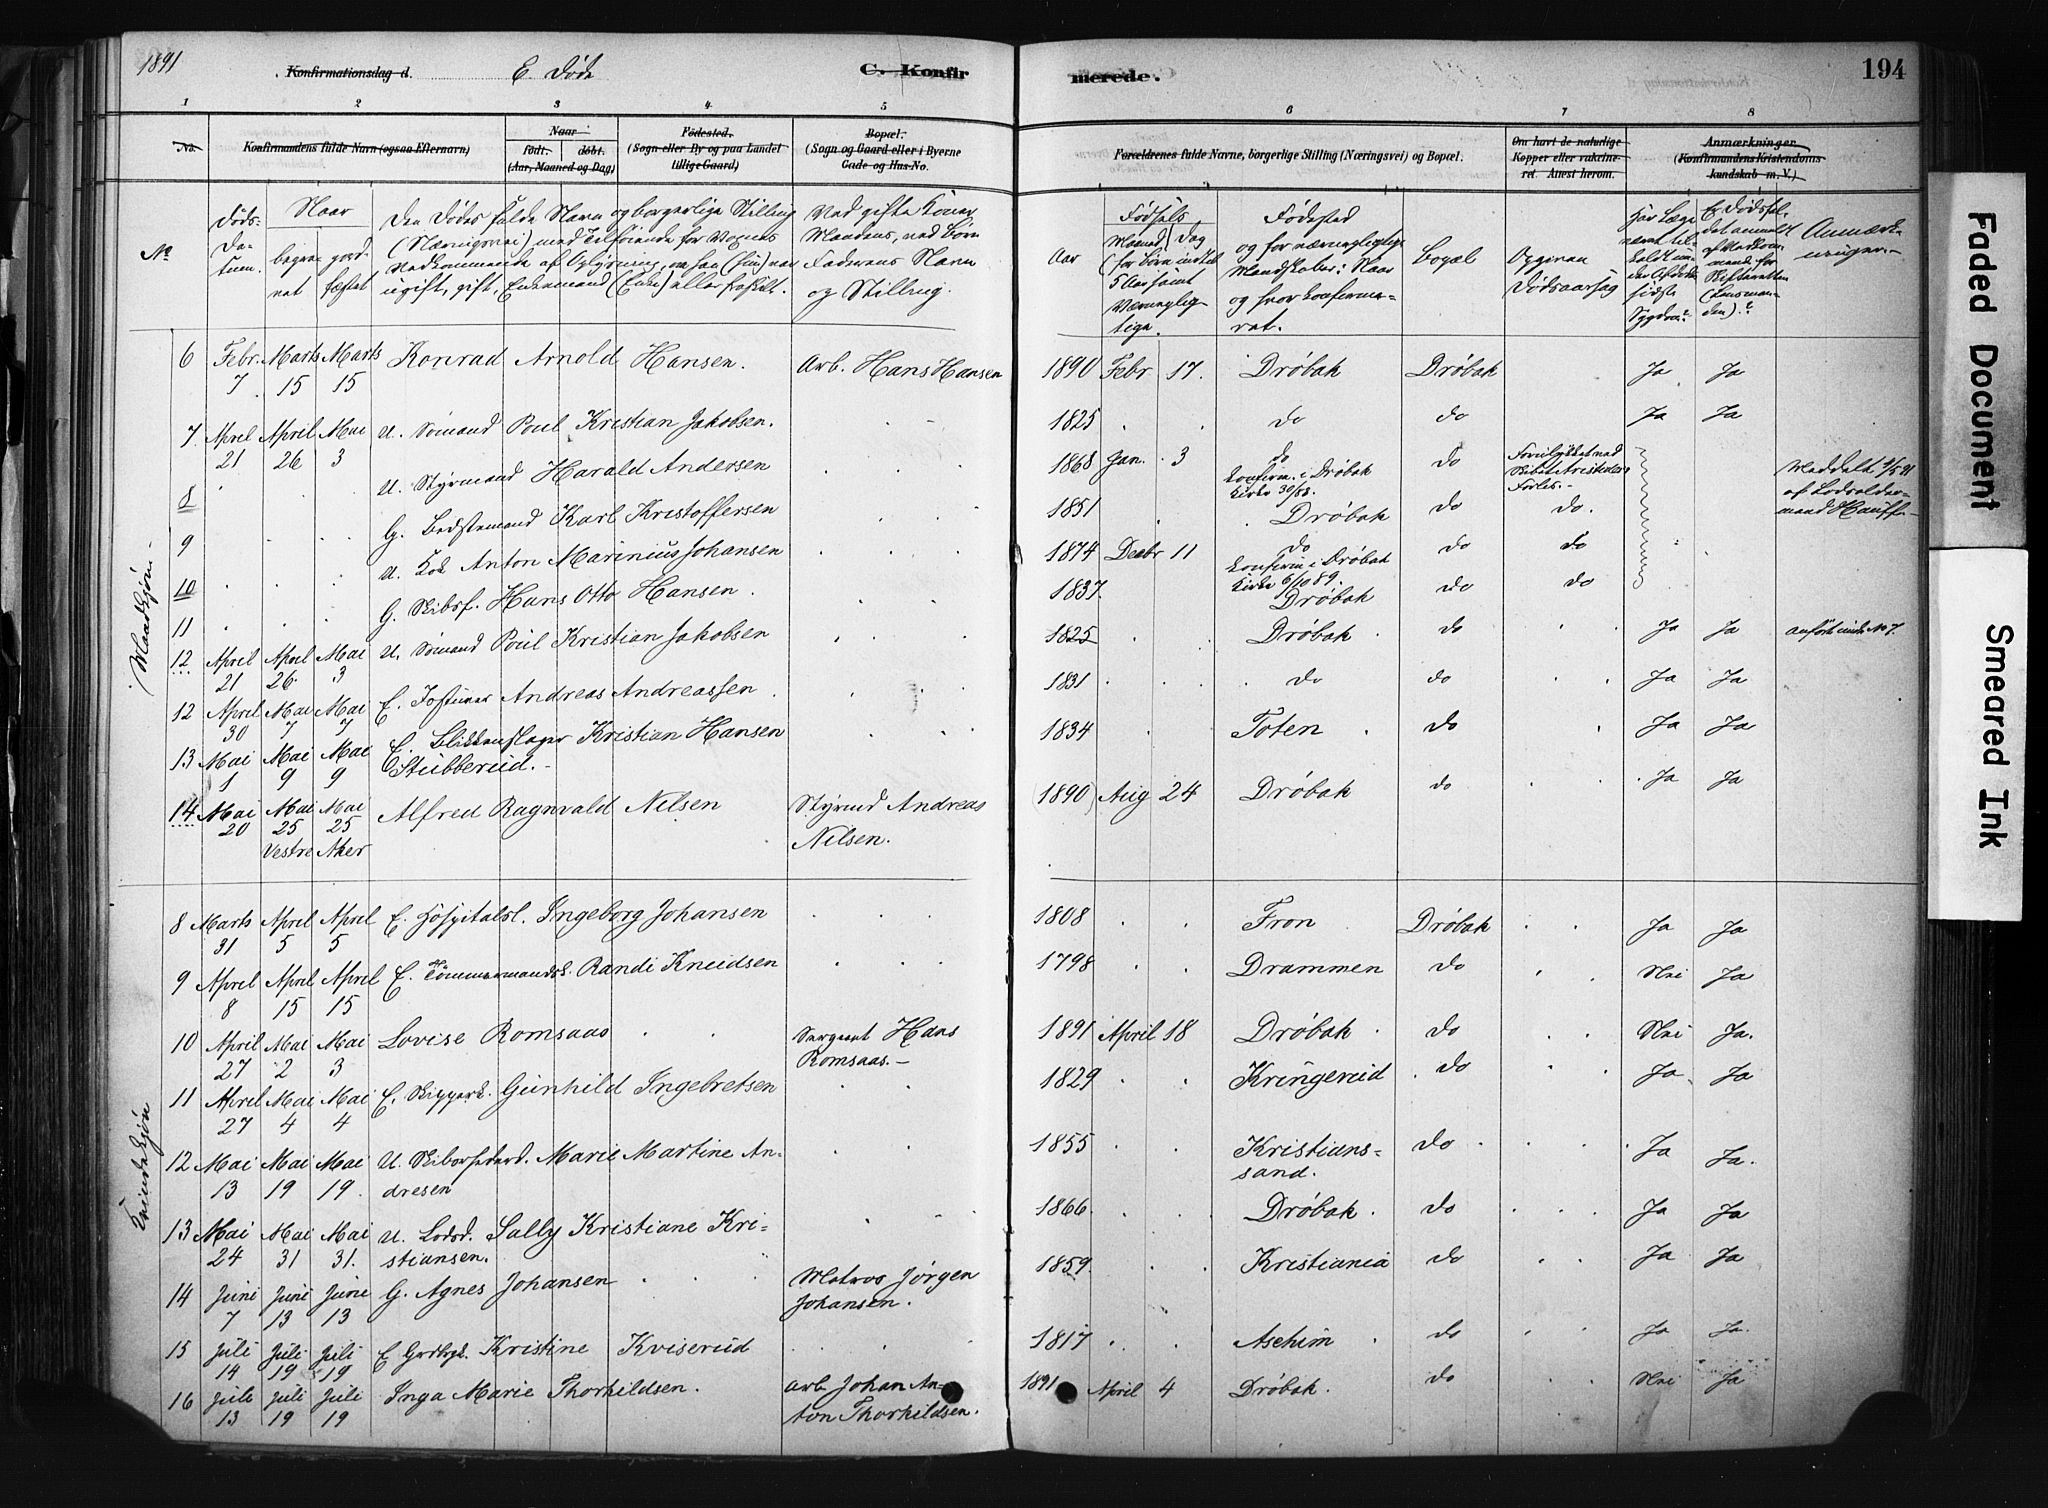 1891 Konfirmationsdag d. E. Døde C. Konfirmerede. 194
1 2 3 4 5 6 7 8
No. Konfirmandens fulde Navn (ogsaa Efternavn) Naar født. døbt. (Aar, Maaned og Dag) Fødested. (Sogn eller By og paa Landet tillige Gaard) Bopæl. (Sogn og Gaard eller i Byerne Gade og Hus-No. Forældrenes fulde Navne, borgerlige Stilling (Næringsvei) og Bopæl. Om havt de naturlige Kopper eller vakcineret. Attest herom. Anmærkninger (Konfirmandens Kristendomskundskab m. V.)
No Døds-Datum. Naar begravet jordfæstet
Den Dødes fulde Navn og borgerlige Stilling
(Næringsvei) med Tilføiende for Voxnes
Vedkommende af Oplysning, om han (hun) var
ugift, gift, Enkemand (Enke) eller fraskilt.
Ved gifte Koner Mandens, ved Børn Faderens Navn og Stilling.
Aar Fødsels Maaned Dag (for Børn indtil 5 Aar samt Værnepligtige.
Fødested og for værnepligtige Mandskaber: Naar og hvor konfirmeret.
Bopæl
Opgiven Dødsaarsag
Har Læge været tilkaldt under Afdødes sidste Sygdom?
Er Dødsfaldet anmeldt af Vedkommende for Skifteretten (Lensmanden)?
Anmærkninger.
Mandkjøn
6 Febr. 7 Marts 15 Marts 15 Konrad Arnold Hansen. Arb. Hans Hansen 1890 Febr 17. Drøbak Drøbak Ja Ja
7 April 21 April 26 Mai 3 U. Sømand Poul Kristian Jakobsen. 1825 do do Ja Ja
8 U. Styrmand Harald Andersen 1868 Jan. 3 do konfirm. i Drøbak Kirke 30/88. do Forulykket med Skibet Aristides Forlis.- Meddelt 4/5 91 af Lodsolder-
mand Hauff.-
9 G. Bedstemand Karl Kristoffersen 1851 Drøbak do do.
10 U. Kok Anton Marinius Johansen 1874 Decbr 11 do konfirm i Drøbak Kirke 6/10 89. do do
11 G. Skibsf. Hans Otto Hansen. 1837. Drøbak do do
12 April 21 April 26. Mai 3 U. Sømand Poul Kristian Jakobsen 1825 Drøbak do Ja Ja anført under No 7.
12 April 30 Mai 7 Mai 7 E. Andreas Andreassen. 1831 do do Ja Ja
13 Mai 1 Mai 9 Mai 9 E. Blikkenslager Kristian Hansen 1834 Toten do Ja Ja
Stubberud.-
14 Mai 20 Mai 25 Mai 25 Vestre Aker Alfred Ragnvald Nilsen Styrmd Andreas 1890 Aug 24 Drøbak do Ja Ja
Nilsen.
Kvindekjøn
8 Marts 31 April 5 April 5 E. Hospitalsl. Ingeborg Johansen 1808 Fron Drøbak Ja Ja
9 April 8 April 15 April 15 E. Tømmermandsk. Randi Knudsen 1798 Drammen do Nei Ja
10 April 27 Mai 2 Mai 3 Lovise Romsaas Sergeant Hans 1891 April 18 Drøbak do Nei Ja.
Romsaas.-
11 April 27 Mai 4 Mai 4 E. Skipperk. Gunhild Ingebretsen 1829 Kringerud do Ja Ja
12 Mai 13 Mai 19 Mai 19. U. Marie Martine An- 1855 Kristians- do Ja Ja.
dresen sand.
13 Mai 24 Mai 31 Mai 31. U. Lodsd. Sally Kristiane Kri- 1866. Drøbak. do Ja Ja
stiansen.
14 Juni 7 Juni 13 Juni 13 G. Agnes Johansen Matros Jørgen 1859 Kristiania do Ja Ja
Johansen.
15 Juli 14 Juli 19 Juli 19 E Grdbrgk. Kristine Kviserud 1817 Aschim do Ja Ja.
16 Juli 13 Juli 19 Juli 19 Inga Marie Thorkildsen. Arb. Johan An- 1891 April 4 Drøbak. do Nei Ja
ton Thorkildsen.
Faded Document
Smeared Ink